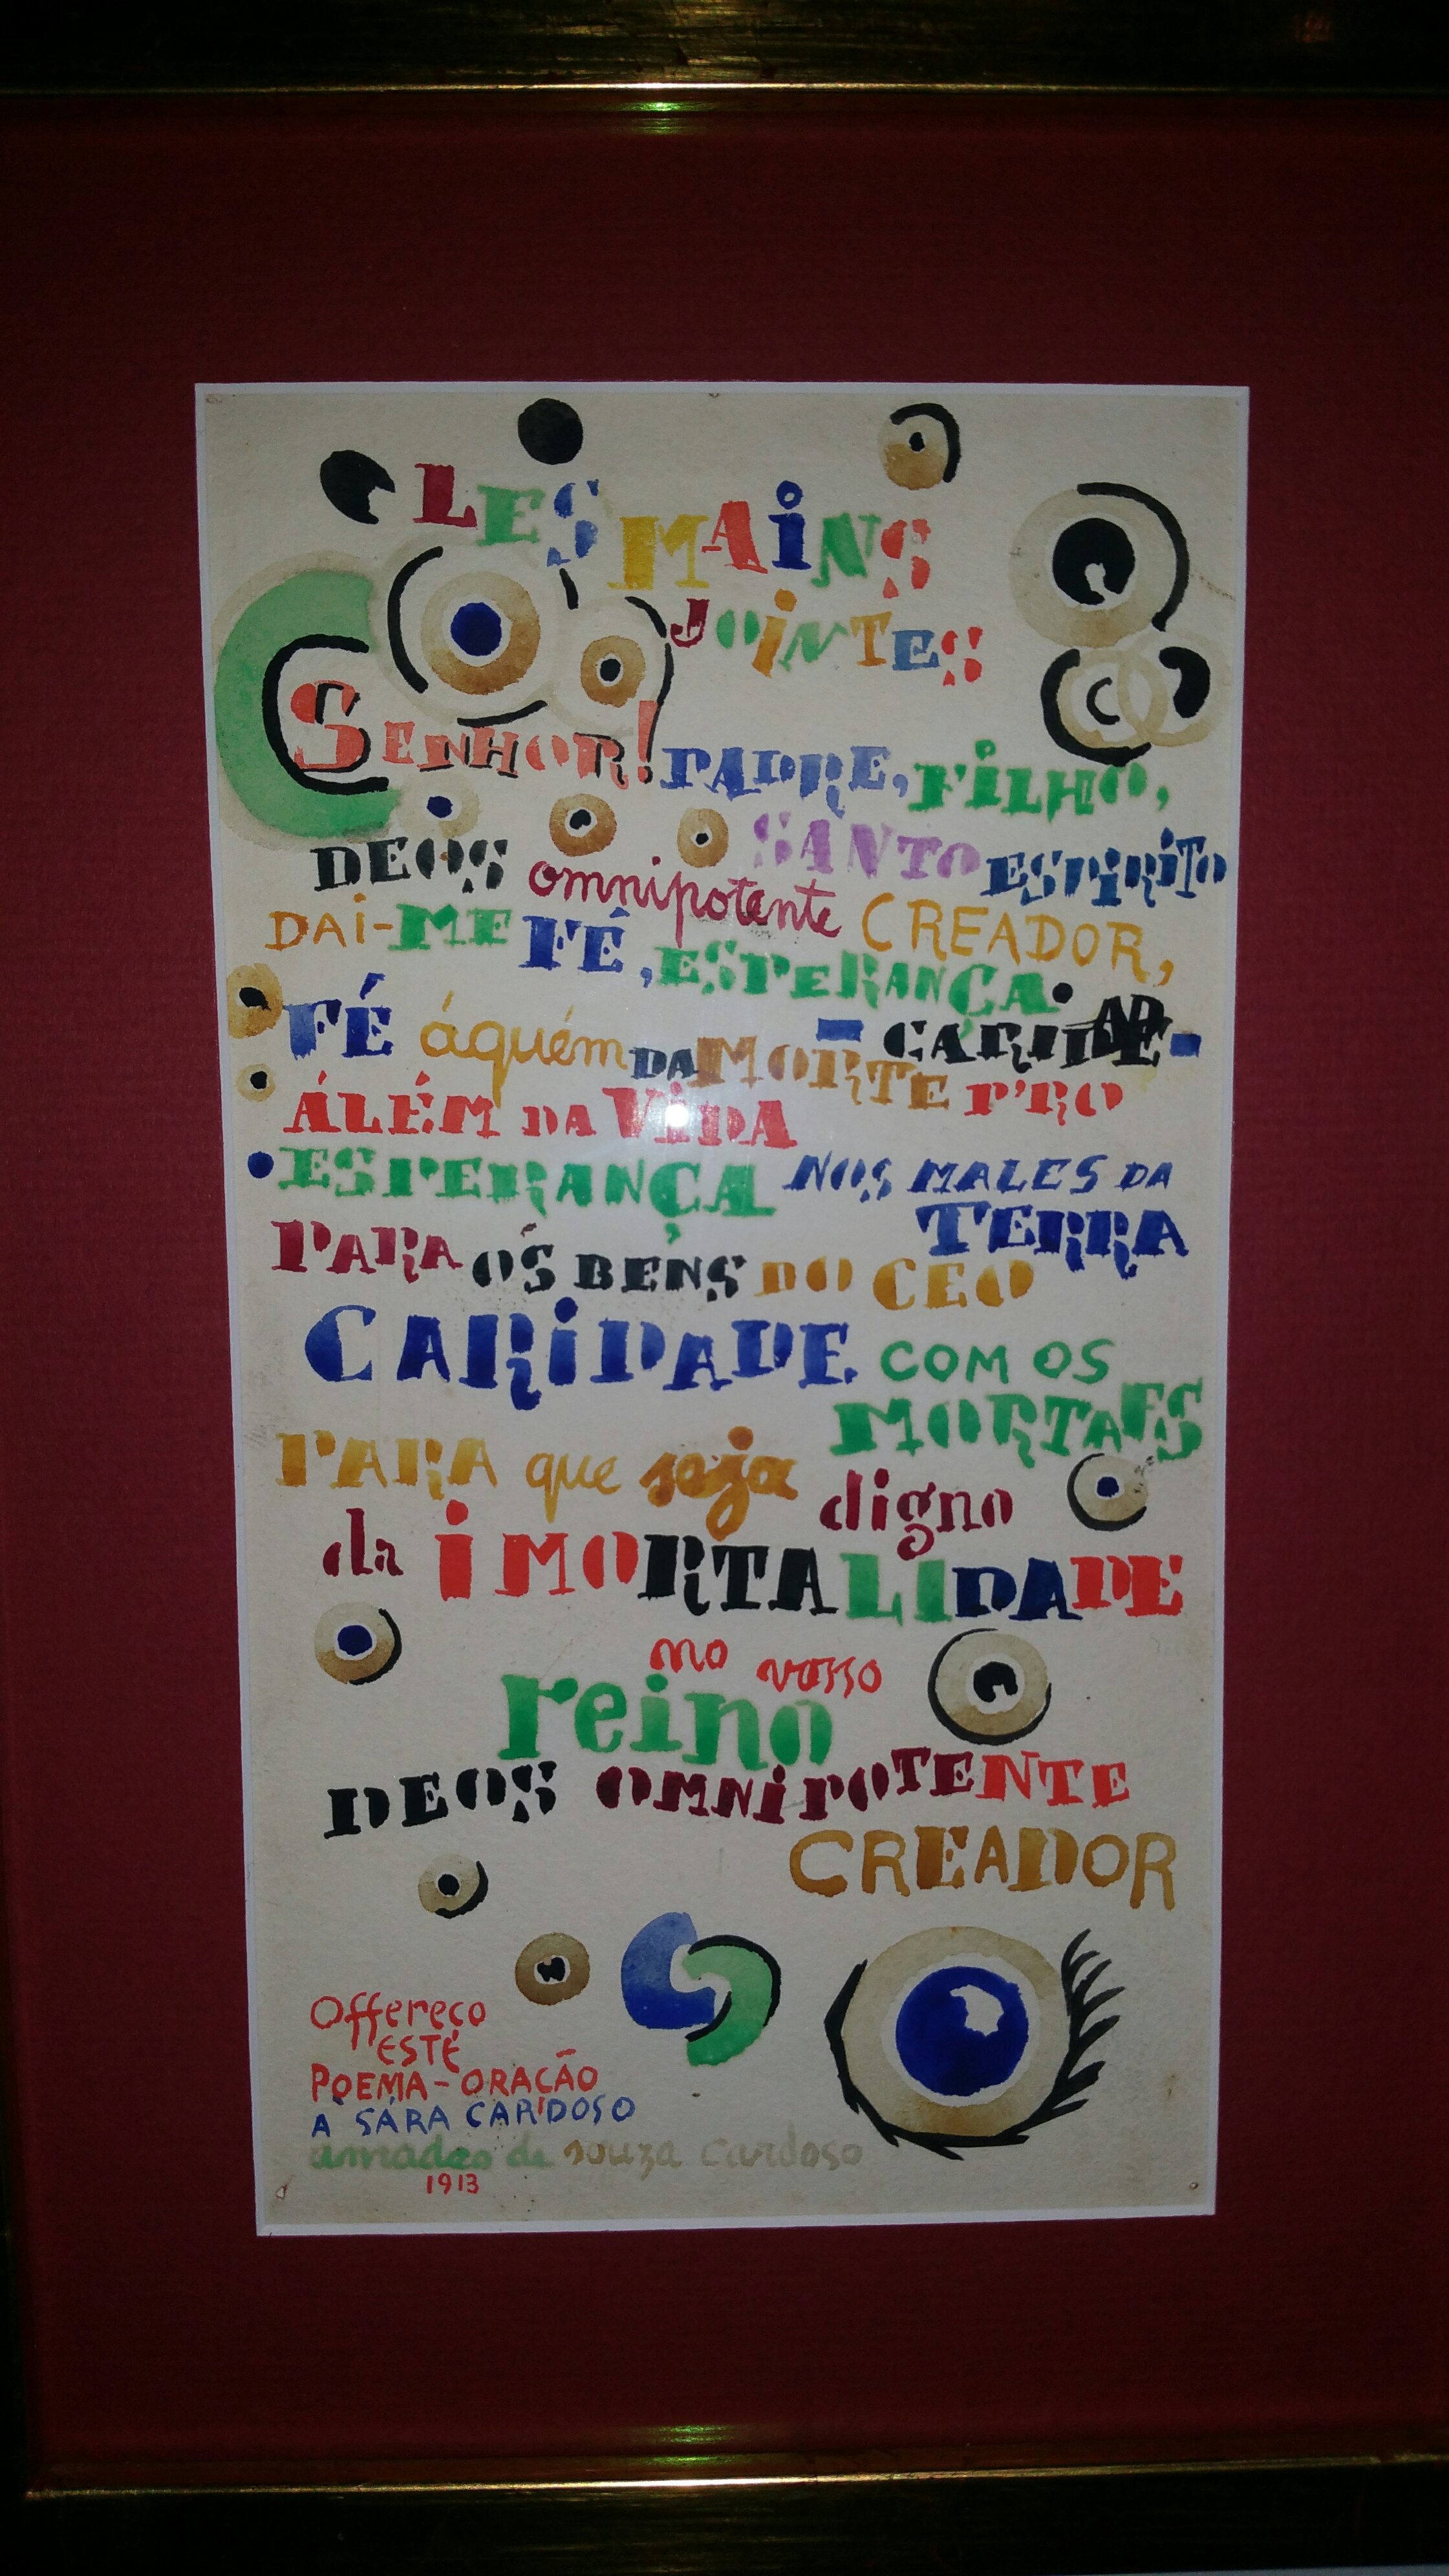 LES MAiNS
JOiNTES
SENHOR! PADRE, FiLHO,
SANTO ESPiRiTO
DEOS omnipotente CREADOR,
DAi-ME FÉ, ESPERANÇA
- CARIDADE -
FÉ áquém DA MORTE P'RO
ÁLÉM DA ViDA
ESPERANÇA NOS MALES DA
TERRA
PARA OS BENS DO CEO
CARiDADE COM OS
MORTAES
PARA que seja digno
da iMORTALIDADE
no vosso
reino
DEOS OMNiPOTENTE
CREADOR
Offereço
ESTE
POEMA-ORAÇÃO
A SÁRA CARDOSO
amadeo de souza cardoso
1913